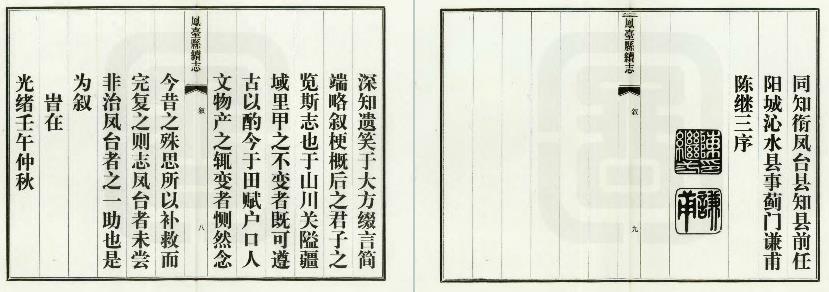 深知遗笑于大方缀言简
端略叙梗概后之君子之
览斯志也于山川关隘疆
域里甲之不变者既可遵
古以酌今于田赋户口人
鳳臺縣續志
叙
八
文物产之辄变者恻然念
今昔之殊思所以补救而
完复之则志凤台者未尝
非治凤台者之一助也是
为叙
旹在
光绪壬午仲秋
同知衔凤台县知县前任
阳城沁水县事蓟门谦甫
陈继三序
陳印繼三
謙甫
鳳臺縣續志
叙
九